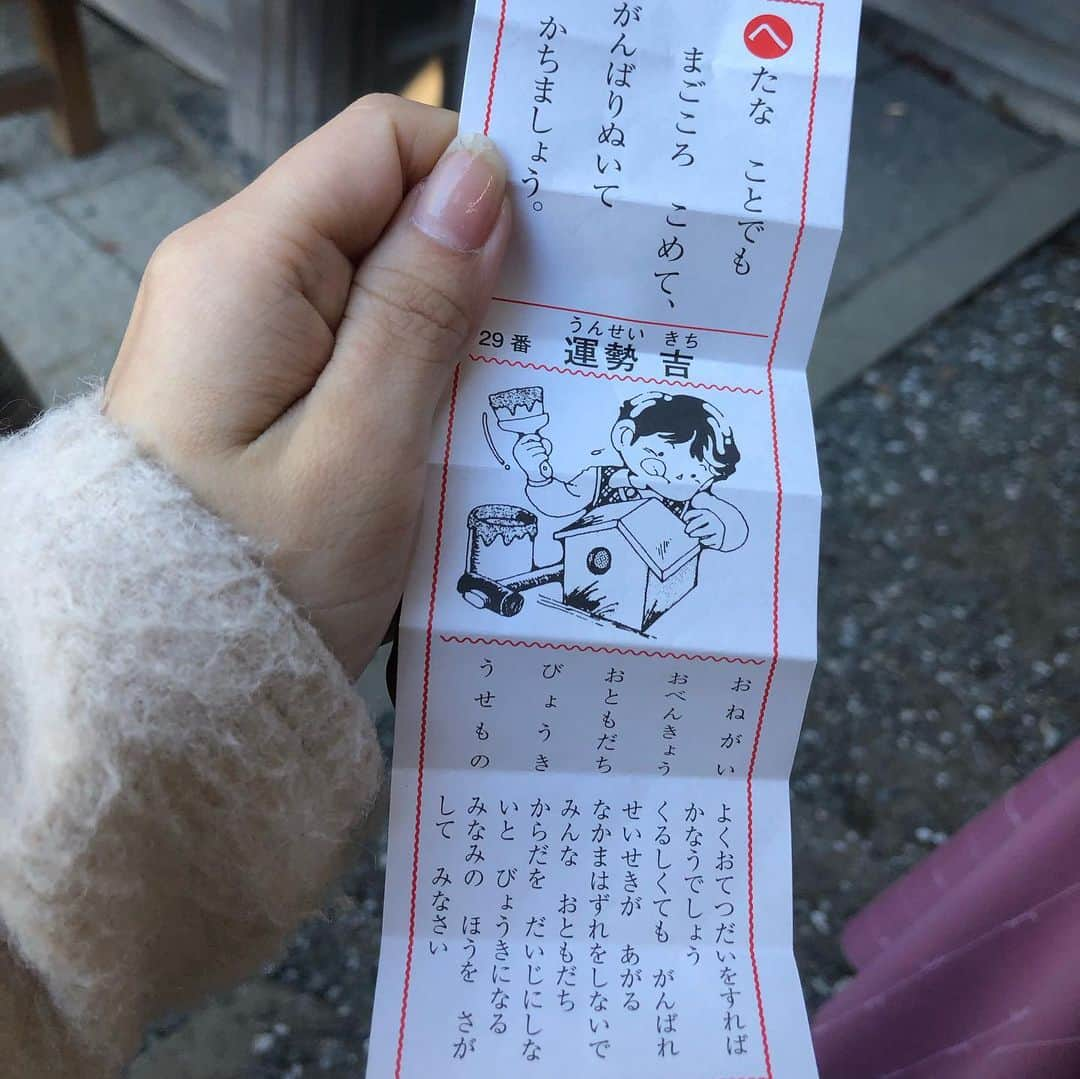 へたな　ことでも
まごころ　こめて、
がんばりぬいて
かちましょう。
29番　運勢　吉
うんせい　きち
おねがい
よくおてつだいをすれば
かなうでしょう
おべんきょう
くるしくても　がんばれ
せいせきが　あがる
おともだち
なかまはずれをしないで
みんな　おともだち
びょうき
からだを　だいじにしな
いと　びょうきになる
うせもの
みなみの　ほうを　さが
して　みなさい